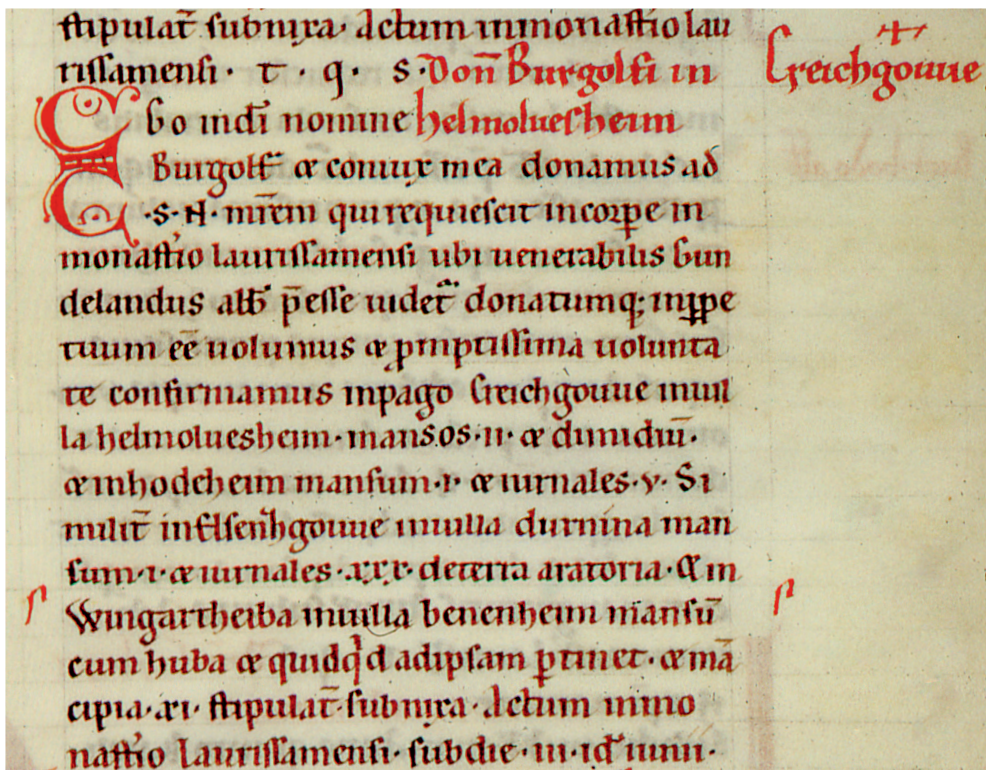 stipulat̄ subnixa· Actum inmonast̄io lau
rissamensi· t· q· s· Don̄ Burgolfi in Creichgouue
Ego indī nomine helmoluesheim
Burgolf⁊ & coniux mea donamus ad
·S·N· mr̄em qui requiescit incorꝑe in
monast̄io laurissamensi ubi uenerabilis Gun
delandus abb̄ p̄esse uidet̄ donatumq; inꝑpe
tuum eē uolumus & ꝓmptissima uolunta
te confirmamus inpago Creichgouue inuil
la helmoluesheim· mansos·ii· & dimidiū·
& inhodeheim mansum·i· & iurnales·v· Si
milit̄ inElsenhgouue inuilla durnina man
sum·i· & iurnales·xxx· deterra aratoria· & in
Wingartheiba inuilla benenheim mansū
cum huba & quidqͥd adipsam ꝑtinet· & mā
cipia·xi· stipulat̄ subnixa· Actum inmo
nast̄io laurissamensi· subdie·iii·id̄ iunii·